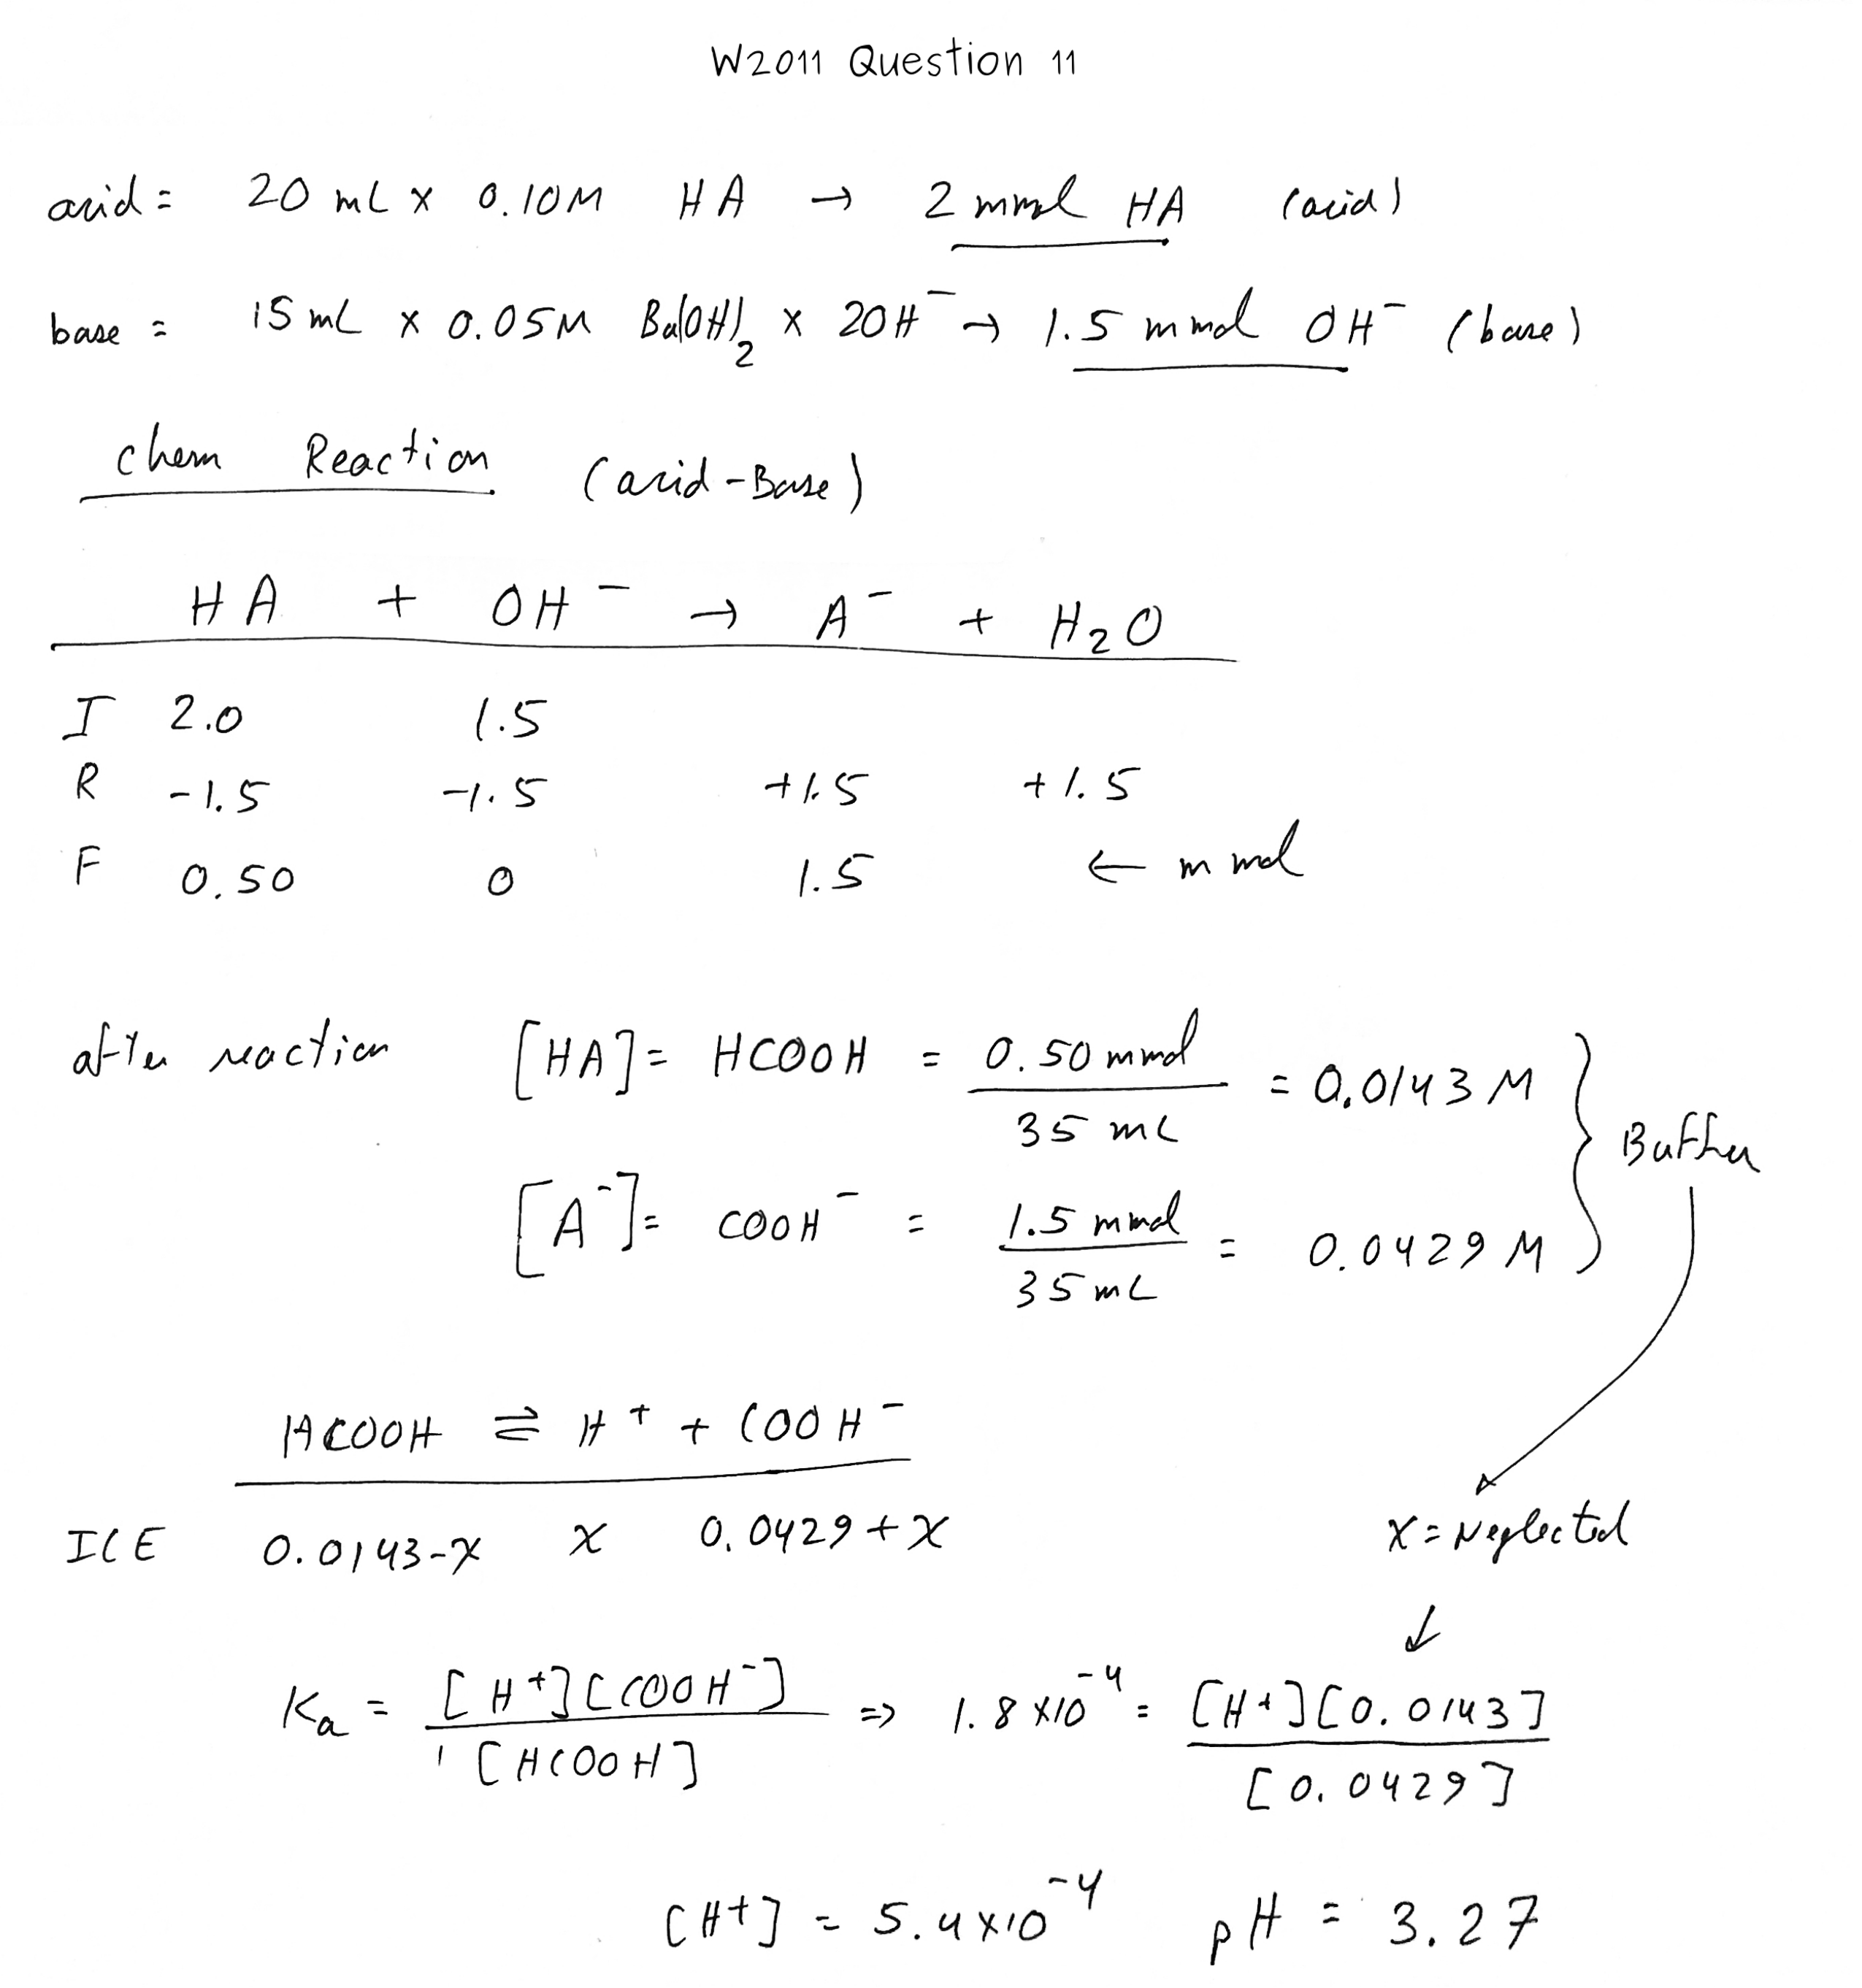 W2011 Question 11
acid = 20 mL x 0.10M HA → 2 mmol HA (acid)
base = 15 mL x 0.05M Ba(OH)₂ x 2OH⁻ → 1.5 mmol OH⁻ (base)
chem Reaction (acid-Base)
HA + OH⁻ → A⁻ + H₂O
I 2.0 1.5
R -1.5 -1.5 +1.5 +1.5
F 0.50 0 1.5 ← mmol
after reaction [HA] = HCOOH = 0.50 mmol / 35 mL = 0.0143 M
Buffer
[A⁻] = COOH⁻ = 1.5 mmol / 35 mL = 0.0429 M
HCOOH ⇌ H⁺ + COOH⁻
ICE 0.0143-x x 0.0429+x x = Neglected
Ka = [H⁺][COOH⁻] / [HCOOH] ⇒ 1.8x10⁻⁴ = [H⁺][0.0143] / [0.0429]
[H⁺] = 5.4x10⁻⁴ pH = 3.27